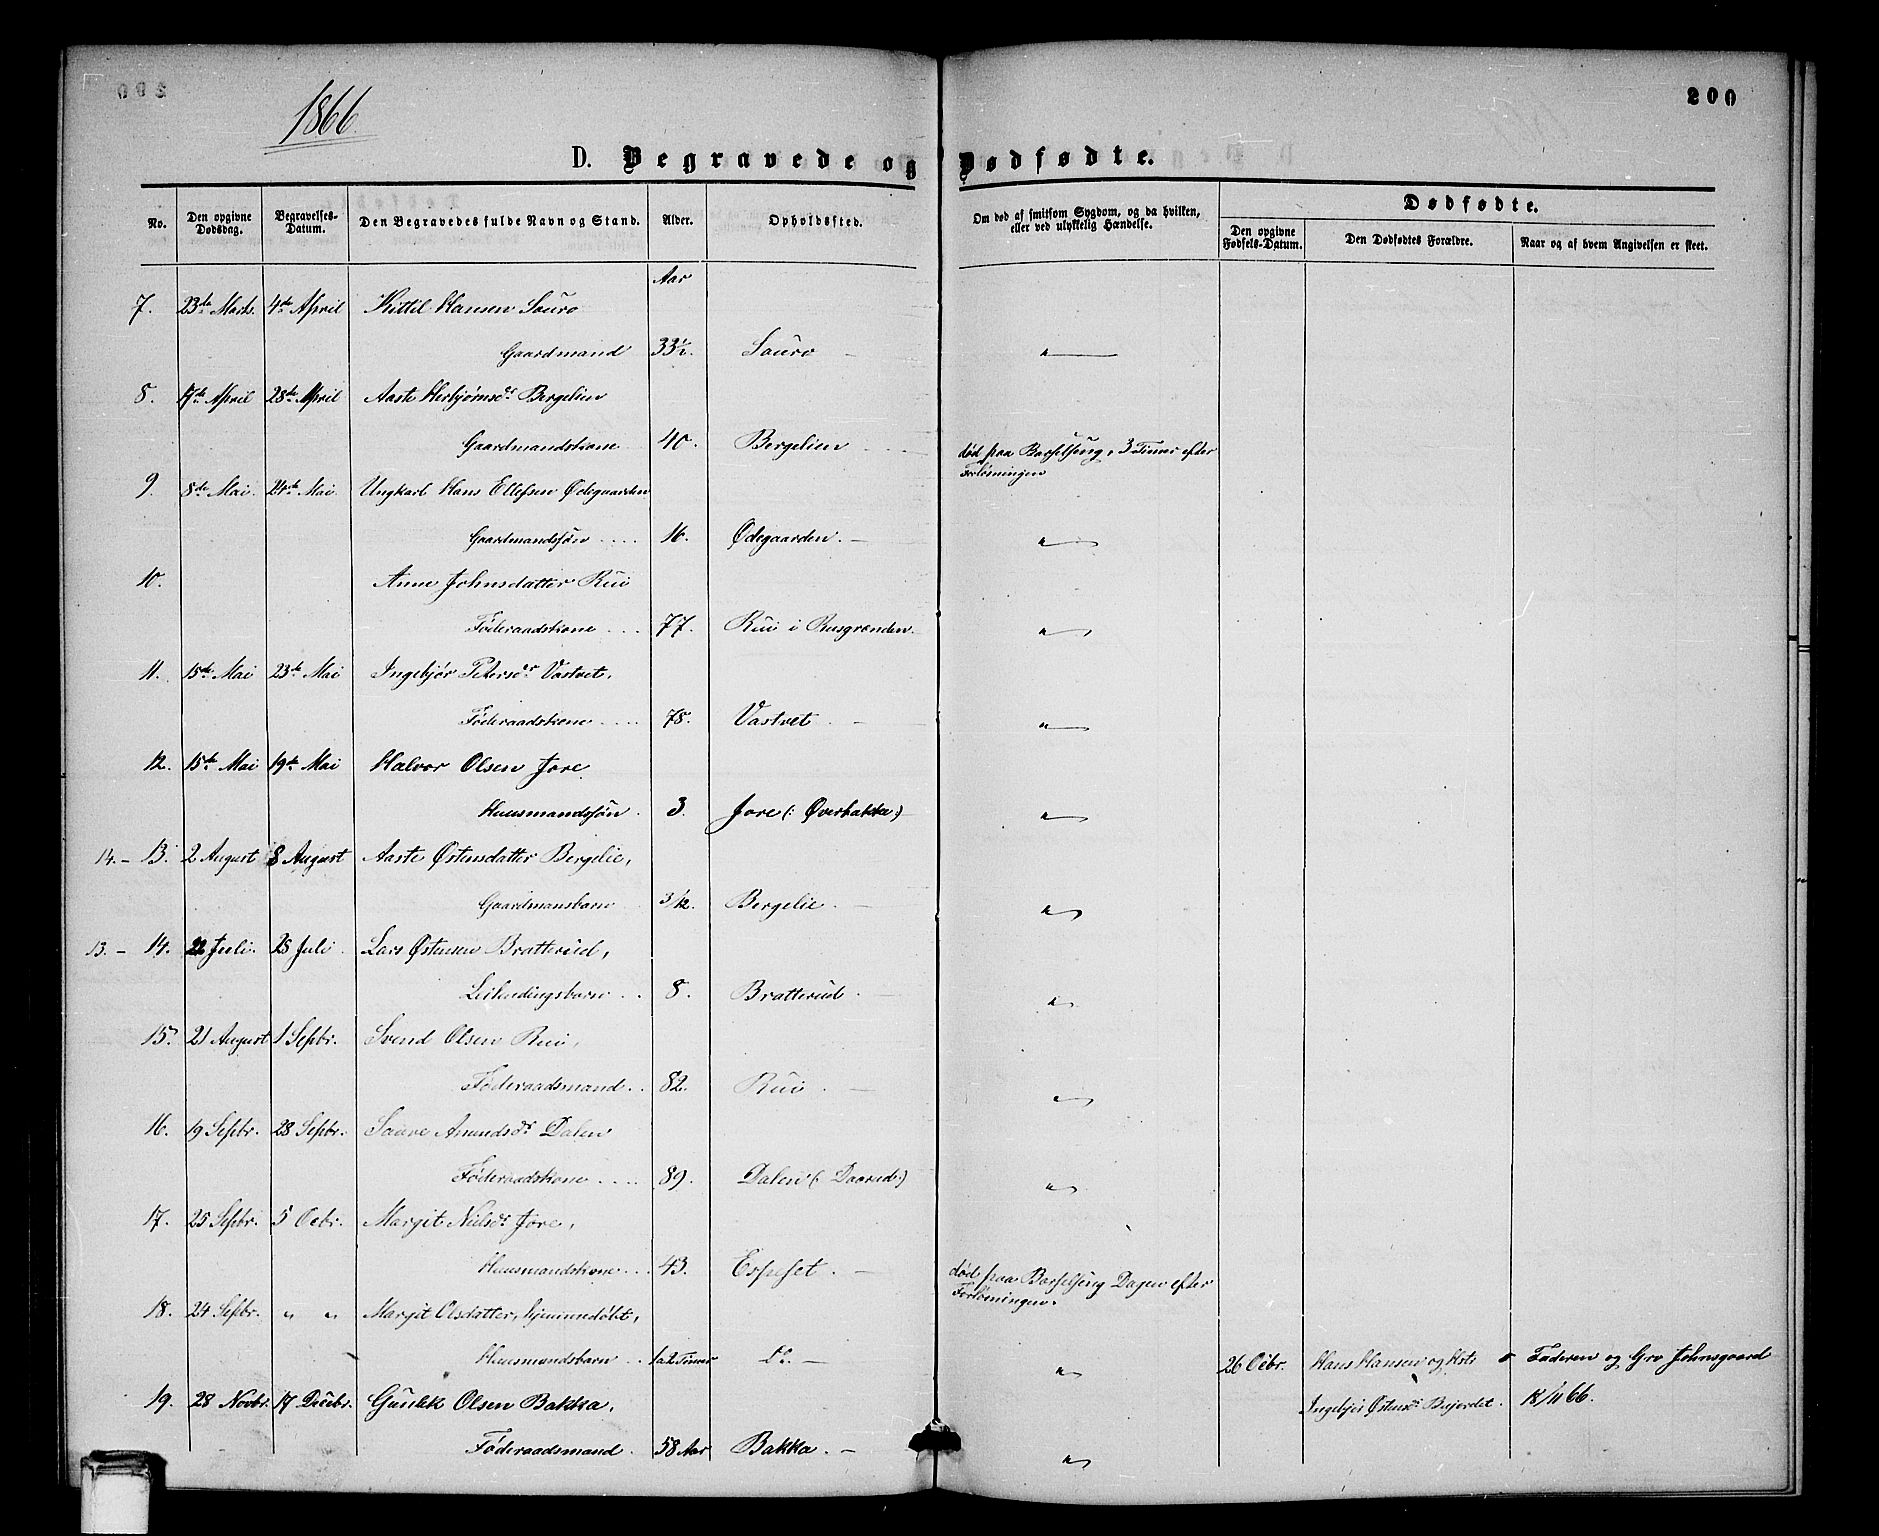 1866.
200
D. Begravede og Dødfødte.
No. Den opgivne Dødsdag. Begravelses-Datum. Den Begravedes fulde Navn og Stand. Alder. Opholdssted. Om død af smitsom Sygdom, og da hvilken, eller ved ulykkelig Hændelse. Dødfødte.
Den opgivne Fødsels-Datum. Den Dødfødtes Forældre. Naar og af hvem Angivelsen er skeet.
Aar
7. 23de Marts. 4de April Kittil Hansen Sauro
Gaardmand 33½. Sauro — "
8. 17de April 28de April Aaste Herbjørnsdr Bergelien
Gaardmandskone 40. Bergelien død paa Barselseng, 3 Timer efter
Forløsningen
9. 8de Mai. 24de Mai. Ungkarl Hans Ellefsen Ødegaarden
Gaardmandssøn .... 16. Ødegaarden. — "
10. Anne Johnsdatter Rui
Føderaadskone .... 77. Rui i Rusgrænden. "
11. 15de Mai 23de Mai Ingebjør Petersdr Vastvet,
Føderaadskone .... 78. Vastvet — "
12. 15de Mai 19de Mai Halvor Olsen Jore
Huusmandssøn. 3. Jore (: Øverbakka:) "
14. – 13. 2 August 8 August Aaste Østensdatter Bergelie,
Gaardmansbarn 3/12. Bergelie. — "
13. – 14. 22 Juli. 28 Juli. Lars Østensen Bratterud,
Leilendingsbarn .. 8. Bratterud. — "
15. 21 August 1 Septbr. Svend Olsen Rui,
Føderaadsmand.. 82. Rui. — "
16. 19 Septbr. 28 Septbr. Saave Amundsdr Dalen
Føderaadskone .... 89. Dalen (: Daarud:) "
17. 25 Septbr. 5 Octbr. Margit Nielsdr Jore,
Huusmandskone ... 43. Espeset. — død paa Barselseng Dagen efter
Forløsningen.
18. 24 Septbr. " " Margit Olsdatter, hjemmedøbt,
Huusmandsbarn .. 1 a 2 Timer Do. — " 26 Octbr. Hans Hansen og Kst: Faderen og Gro Johnsgaard
19. 28 Novbr. 17 Decebr. Gunlek Olsen Bakka, Ingebjør Østensdr Bøjordet. 18/11 66.
Føderaadsmand. 58 Aar Bakka. — "